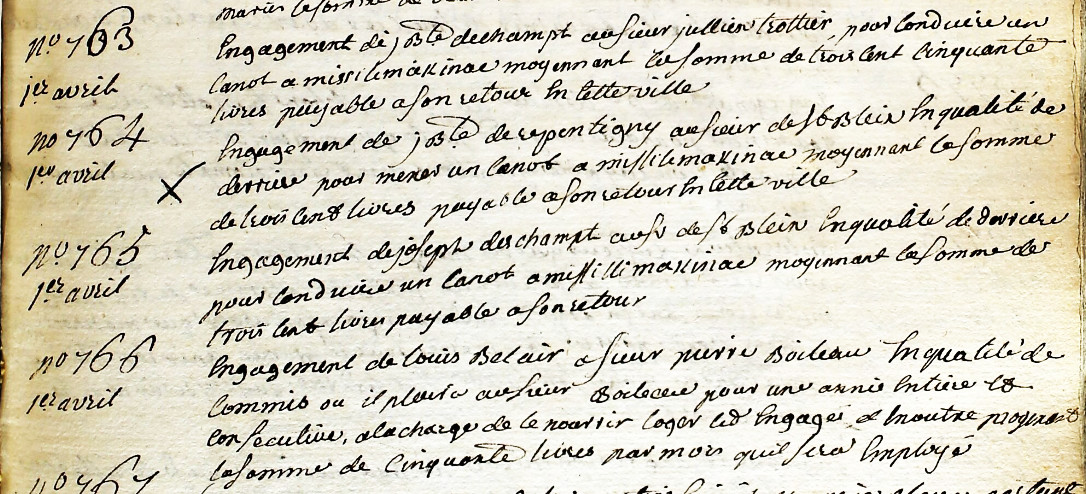 maries la somme de
no 763 Engagement de j Bte dechampt au sieur jullien trottier, pour Conduire un
1er avril Canot a missilimakinac moyennant la somme de trois Cent Cinquante
livres payable a son retour En Cette ville
no 764 Engagement de j Bte de repentigny au sieur de St Blein En qualité de
1er avril derriere pour mener un Canot a missilimakinac moyennant la somme
de trois Cent livres payable a son retour En Cette ville
no 765 Engagement de joseph deschampt au sr de St Blein En qualité de derriere
1er avril pour Conduire un Canot a missillimakinac moyennant la somme de
trois Cent livres payable a son retour
no 766 Engagement de Louis Belair a sieur pierre Boileau En qualité de
1er avril Commis ou il plaira au sieur Boileau pour une année Entiere Et
Consecutive, a la charge de le nourrir loger led Engagé, et En outre moyenant
la somme de Cinquante livres par mois qu'il sera Employé
no 767